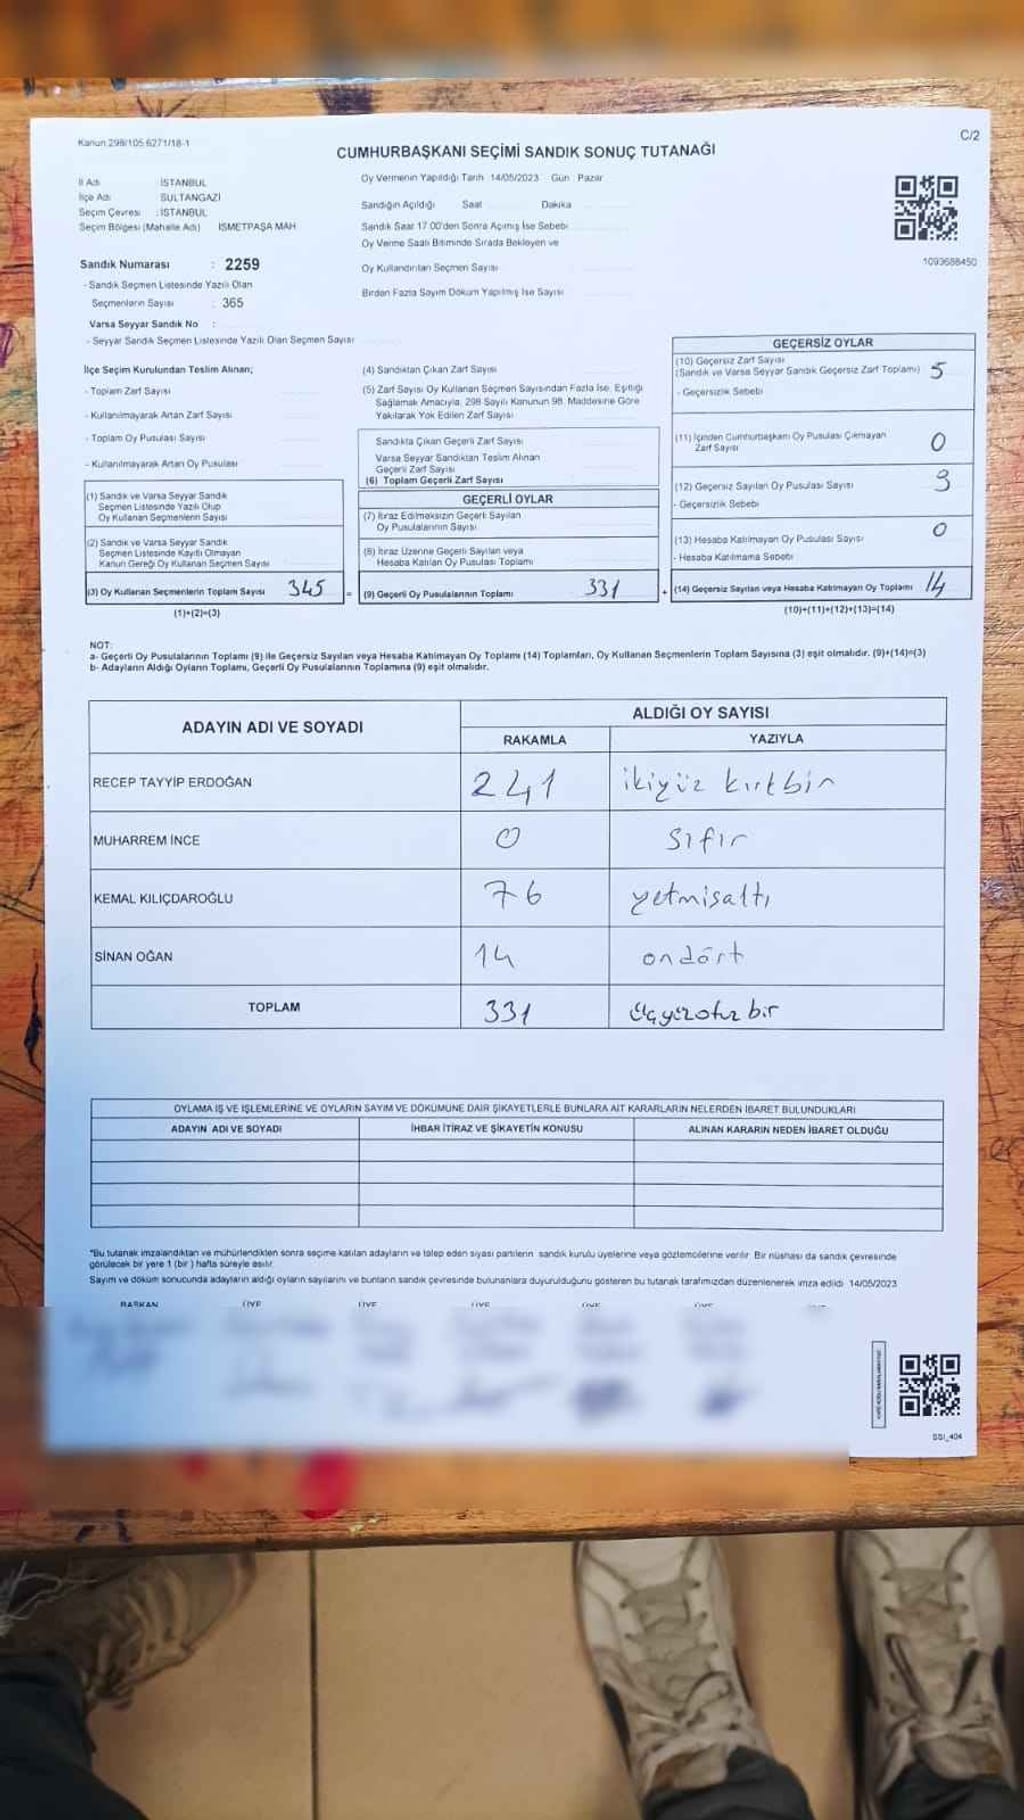 Kanun.298/105.6271/18-1
C/2
CUMHURBAŞKANI SEÇİMİ SANDIK SONUÇ TUTANAĞI
İl Adı : İSTANBUL
İlçe Adı : SULTANGAZİ
Seçim Çevresi : İSTANBUL
Seçim Bölgesi (Mahalle Adı) İSMETPAŞA MAH
Sandık Numarası : 2259
- Sandık Seçmen Listesinde Yazılı Olan
Seçmenlerin Sayısı : 365
Varsa Seyyar Sandık No :
- Seyyar Sandık Seçmen Listesinde Yazılı Olan Seçmen Sayısı
Oy Vermenin Yapıldığı Tarih 14/05/2023 Gün : Pazar
Sandığın Açıldığı Saat Dakika
Sandık Saat 17.00'den Sonra Açılmış İse Sebebi
Oy Verme Saati Bitiminde Sırada Bekleyen ve
Oy Kullandırılan Seçmen Sayısı
Birden Fazla Sayım Döküm Yapılmış İse Sayısı
1093688450
İlçe Seçim Kurulundan Teslim Alınan;
- Toplam Zarf Sayısı
- Kullanılmayarak Artan Zarf Sayısı
- Toplam Oy Pusulası Sayısı
- Kullanılmayarak Artan Oy Pusulası
(1) Sandık ve Varsa Seyyar Sandık
Seçmen Listesinde Yazılı Olup
Oy Kullanan Seçmenlerin Sayısı
(2) Sandık ve Varsa Seyyar Sandık
Seçmen Listesinde Kayıtlı Olmayan
Kanun Gereği Oy Kullanan Seçmen Sayısı
(3) Oy Kullanan Seçmenlerin Toplam Sayısı 345
(1)+(2)=(3)
(4) Sandıktan Çıkan Zarf Sayısı
(5) Zarf Sayısı Oy Kullanan Seçmen Sayısından Fazla İse, Eşitliği
Sağlamak Amacıyla, 298 Sayılı Kanunun 98. Maddesine Göre
Yakılarak Yok Edilen Zarf Sayısı
Sandıkta Çıkan Geçerli Zarf Sayısı
Varsa Seyyar Sandıktan Teslim Alınan
Geçerli Zarf Sayısı
(6) Toplam Geçerli Zarf Sayısı
GEÇERLİ OYLAR
(7) İtiraz Edilmeksizin Geçerli Sayılan
Oy Pusulalarının Sayısı
(8) İtiraz Üzerine Geçerli Sayılan veya
Hesaba Katılan Oy Pusulası Toplamı
= (9) Geçerli Oy Pusulalarının Toplamı 331
GEÇERSİZ OYLAR
(10) Geçersiz Zarf Sayısı
(Sandık ve Varsa Seyyar Sandık Geçersiz Zarf Toplamı) 5
- Geçersizlik Sebebi
(11) İçinden Cumhurbaşkanı Oy Pusulası Çıkmayan
Zarf Sayısı 0
(12) Geçersiz Sayılan Oy Pusulası Sayısı 3
- Geçersizlik Sebebi
(13) Hesaba Katılmayan Oy Pusulası Sayısı 0
- Hesaba Katılmama Sebebi
+ (14) Geçersiz Sayılan veya Hesaba Katılmayan Oy Toplamı 14
(10)+(11)+(12)+(13)=(14)
NOT:
a- Geçerli Oy Pusulalarının Toplamı (9) ile Geçersiz Sayılan veya Hesaba Katılmayan Oy Toplamı (14) Toplamları, Oy Kullanan Seçmenlerin Toplam Sayısına (3) eşit olmalıdır. (9)+(14)=(3)
b- Adayların Aldığı Oyların Toplamı, Geçerli Oy Pusulalarının Toplamına (9) eşit olmalıdır.
ADAYIN ADI VE SOYADI ALDIĞI OY SAYISI
RAKAMLA YAZIYLA
RECEP TAYYİP ERDOĞAN 241 ikiyüz kırkbir
MUHARREM İNCE 0 sıfır
KEMAL KILIÇDAROĞLU 76 yetmişaltı
SİNAN OĞAN 14 ondört
TOPLAM 331 üçyüzotuz bir
OYLAMA İŞ VE İŞLEMLERİNE VE OYLARIN SAYIM VE DÖKÜMÜNE DAİR ŞİKAYETLERLE BUNLARA AİT KARARLARIN NELERDEN İBARET BULUNDUKLARI
ADAYIN ADI VE SOYADI İHBAR İTİRAZ VE ŞİKAYETİN KONUSU ALINAN KARARIN NEDEN İBARET OLDUĞU
*Bu tutanak imzalandıktan ve mühürlendikten sonra seçime katılan adayların ve talep eden siyasi partilerin sandık kurulu üyelerine veya gözlemcilerine verilir. Bir nüshası da sandık çevresinde
görülecek bir yere 1 (bir) hafta süreyle asılır.
Sayım ve döküm sonucunda adayların aldığı oyların sayılarını ve bunların sandık çevresinde bulunanlara duyurulduğunu gösteren bu tutanak tarafımızdan düzenlenerek imza edildi. 14/05/2023
BAŞKAN ÜYE ÜYE ÜYE ÜYE ÜYE
SSI_404